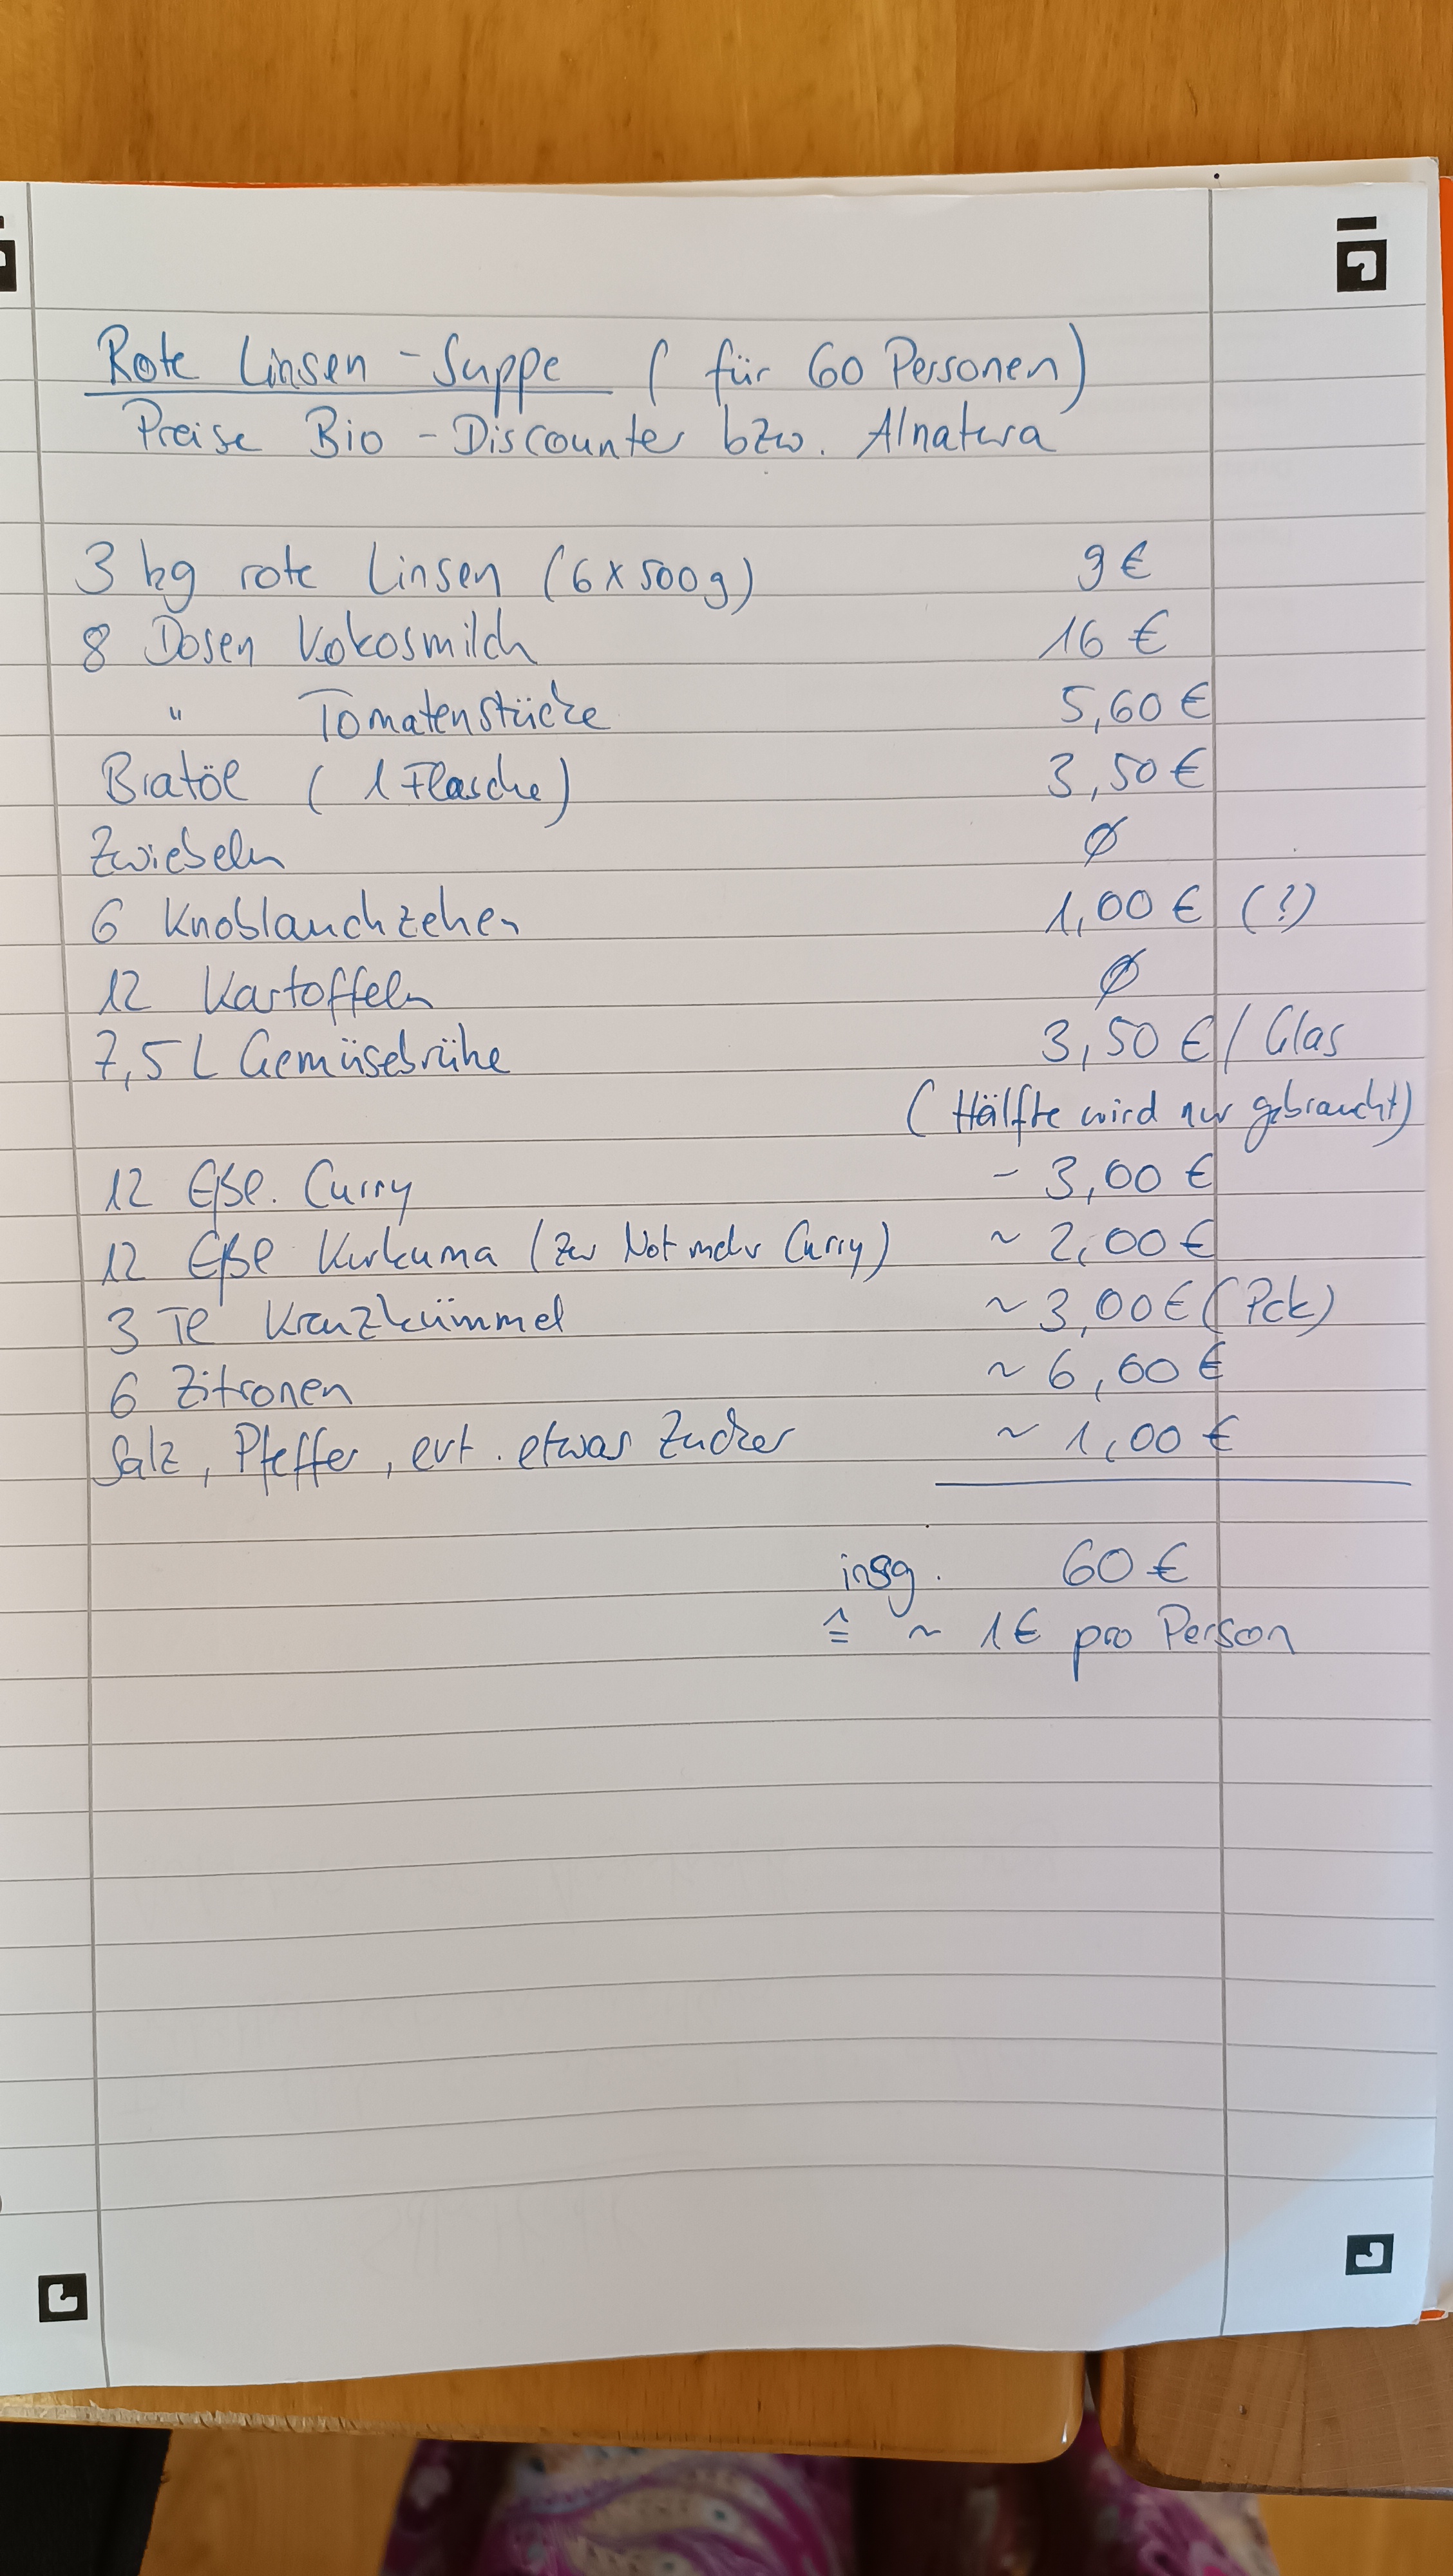 Rote Linsen - Suppe ( für 60 Personen)
Preise Bio - Discounter bzw. Alnatura
3 kg rote Linsen (6 x 500g) 9 €
8 Dosen Kokosmilch 16 €
" Tomatenstücke 5,60 €
Bratöl ( 1 Flasche) 3,50 €
Zwiebeln ∅
6 Knoblauchzehen 1,00 € (?)
12 Kartoffeln ∅
7,5 L Gemüsebrühe 3,50 € / Glas
( Hälfte wird nur gebraucht)
12 Eßl. Curry ~ 3,00 €
12 Eßl Kurkuma (zur Not mehr Curry) ~ 2,00 €
3 Tl Kreuzkümmel ~ 3,00 € ( Pck)
6 Zitronen ~ 6,00 €
Salz, Pfeffer, evt. etwas Zucker ~ 1,00 €
insg. 60 €
≙ ~ 1 € pro Person